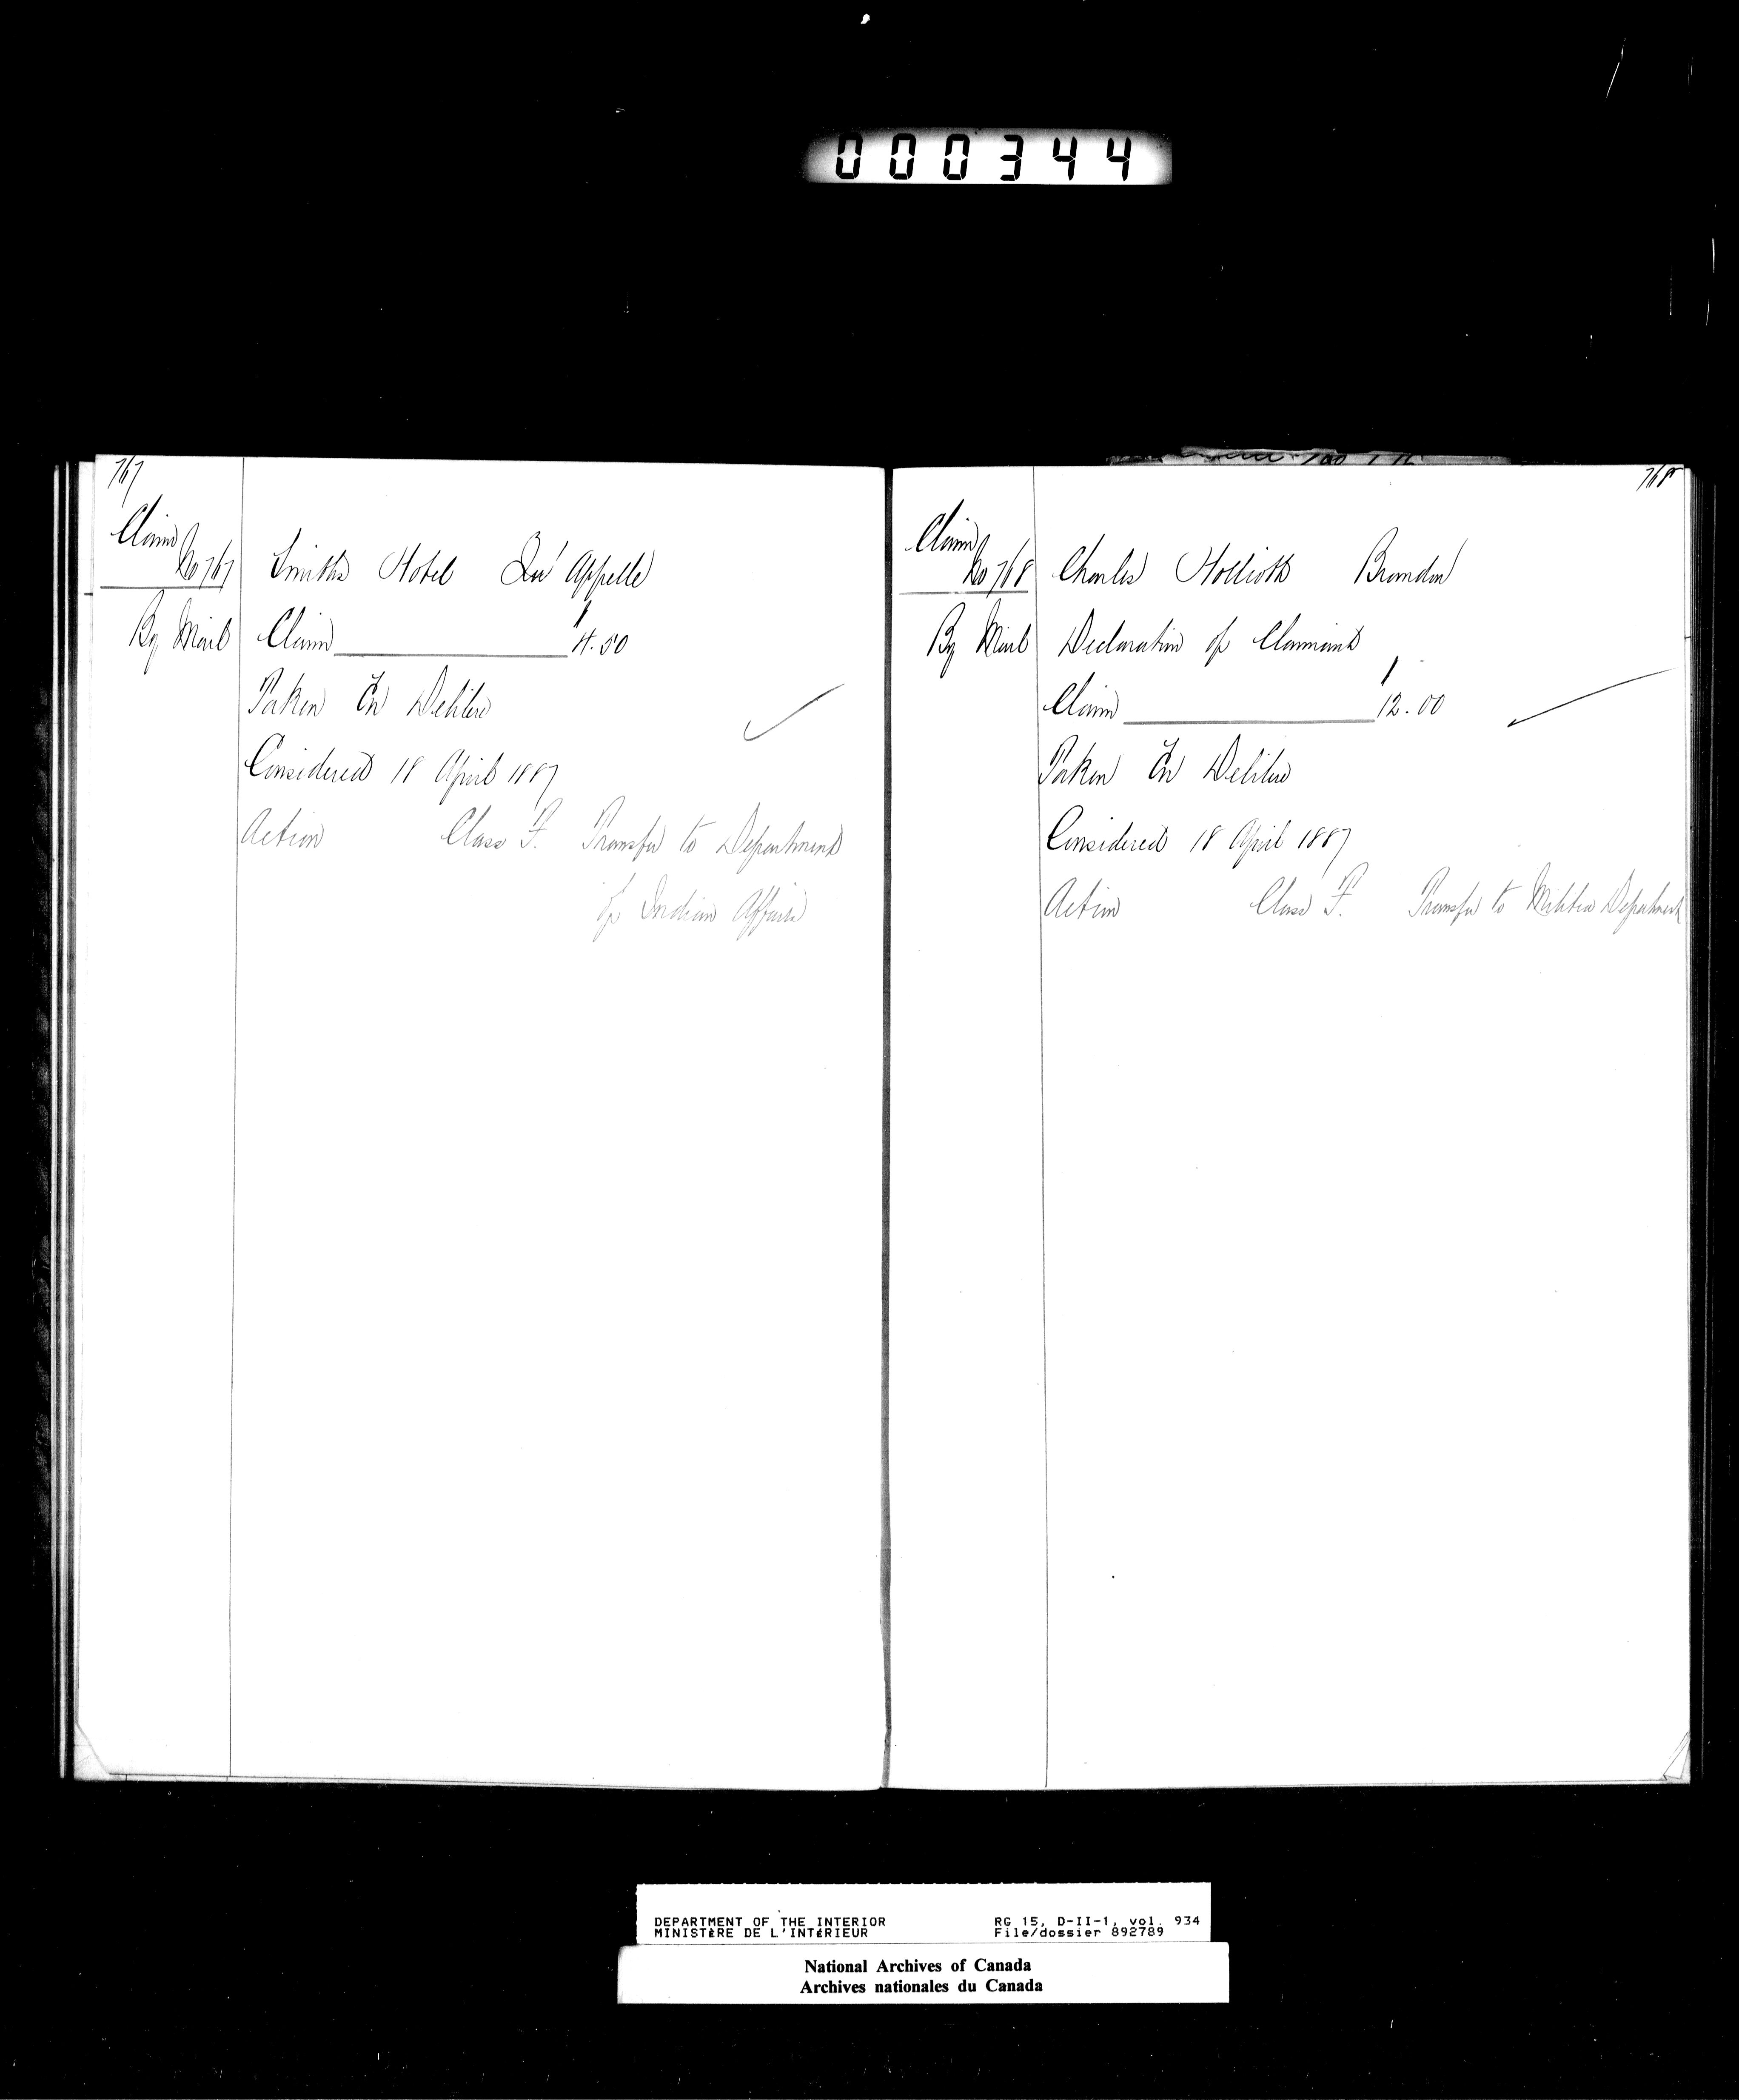 000344
767
Claim
No 767
Smiths Hotel Qu'Appelle
By Mail
Claim $4.50
Taken En Delibere
Considered 18 April 1887
Action Class F. Transfer to Department
of Indian Affairs
768
Claim
No 768
Charles Brandon
By Mail
Declaration of Claimant
Claim $12.00
Taken En Delibere
Considered 18 April 1887
Action Class F. Transfer to Militia Department
DEPARTMENT OF THE INTERIOR RG 15, D-II-1, vol. 934
MINISTÈRE DE L'INTÉRIEUR File/dossier 892789
National Archives of Canada
Archives nationales du Canada